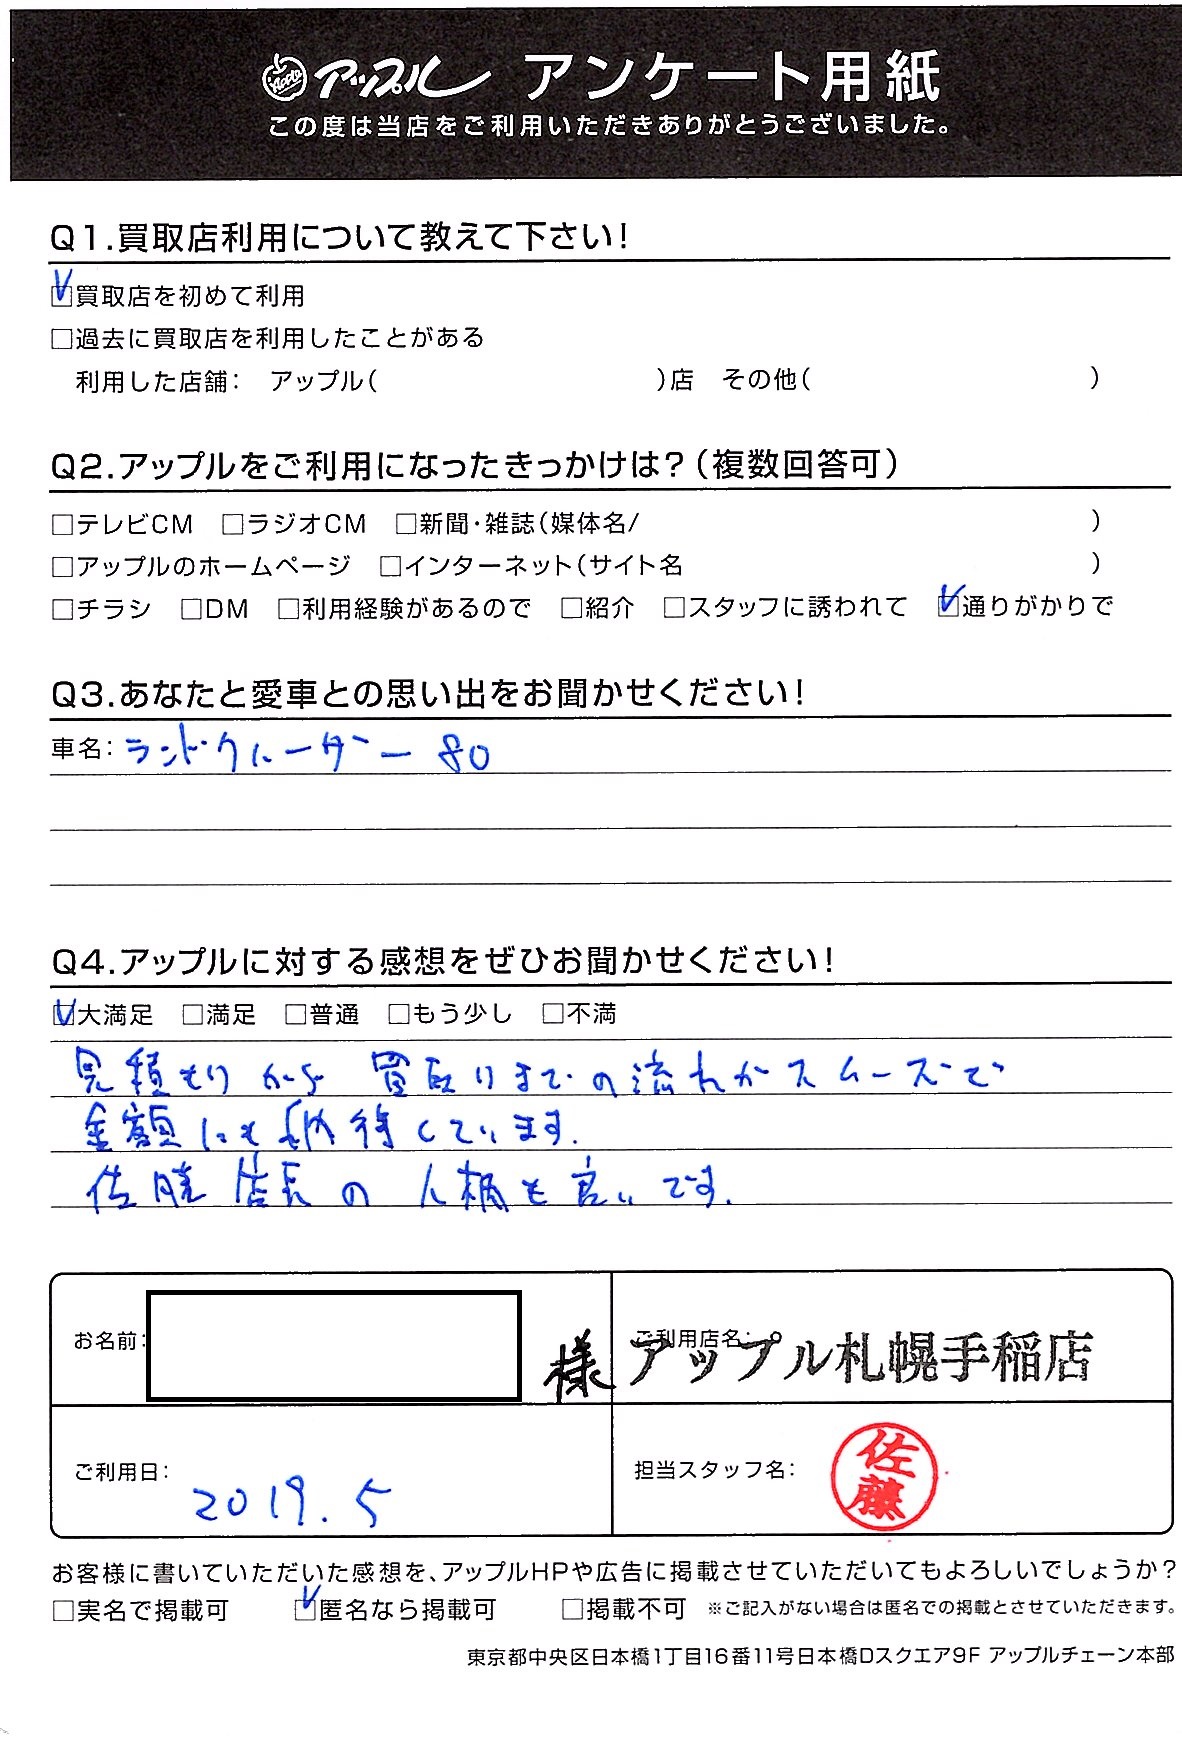 Apple アップル アンケート用紙
この度は当店をご利用いただきありがとうございました。
Q1.買取店利用について教えて下さい！
☑買取店を初めて利用
□過去に買取店を利用したことがある
利用した店舗： アップル（ ）店 その他（ ）
Q2.アップルをご利用になったきっかけは？（複数回答可）
□テレビCM □ラジオCM □新聞・雑誌（媒体名/ ）
□アップルのホームページ □インターネット（サイト名 ）
□チラシ □DM □利用経験があるので □紹介 □スタッフに誘われて ☑通りがかりで
Q3.あなたと愛車との思い出をお聞かせください！
車名： ランドクルーザー 80
Q4.アップルに対する感想をぜひお聞かせください！
☑大満足 □満足 □普通 □もう少し □不満
見積もりから 買取りまでの流れがスムーズで
金額にも納得しています.
佐藤店長の人柄も良いです.
お名前： 様 ご利用店名： アップル札幌手稲店
ご利用日： 2019.5 担当スタッフ名： 佐藤
お客様に書いていただいた感想を、アップルHPや広告に掲載させていただいてもよろしいでしょうか？
□実名で掲載可 ☑匿名なら掲載可 □掲載不可 ※ご記入がない場合は匿名での掲載とさせていただきます。
東京都中央区日本橋1丁目16番11号日本橋Dスクエア9F アップルチェーン本部